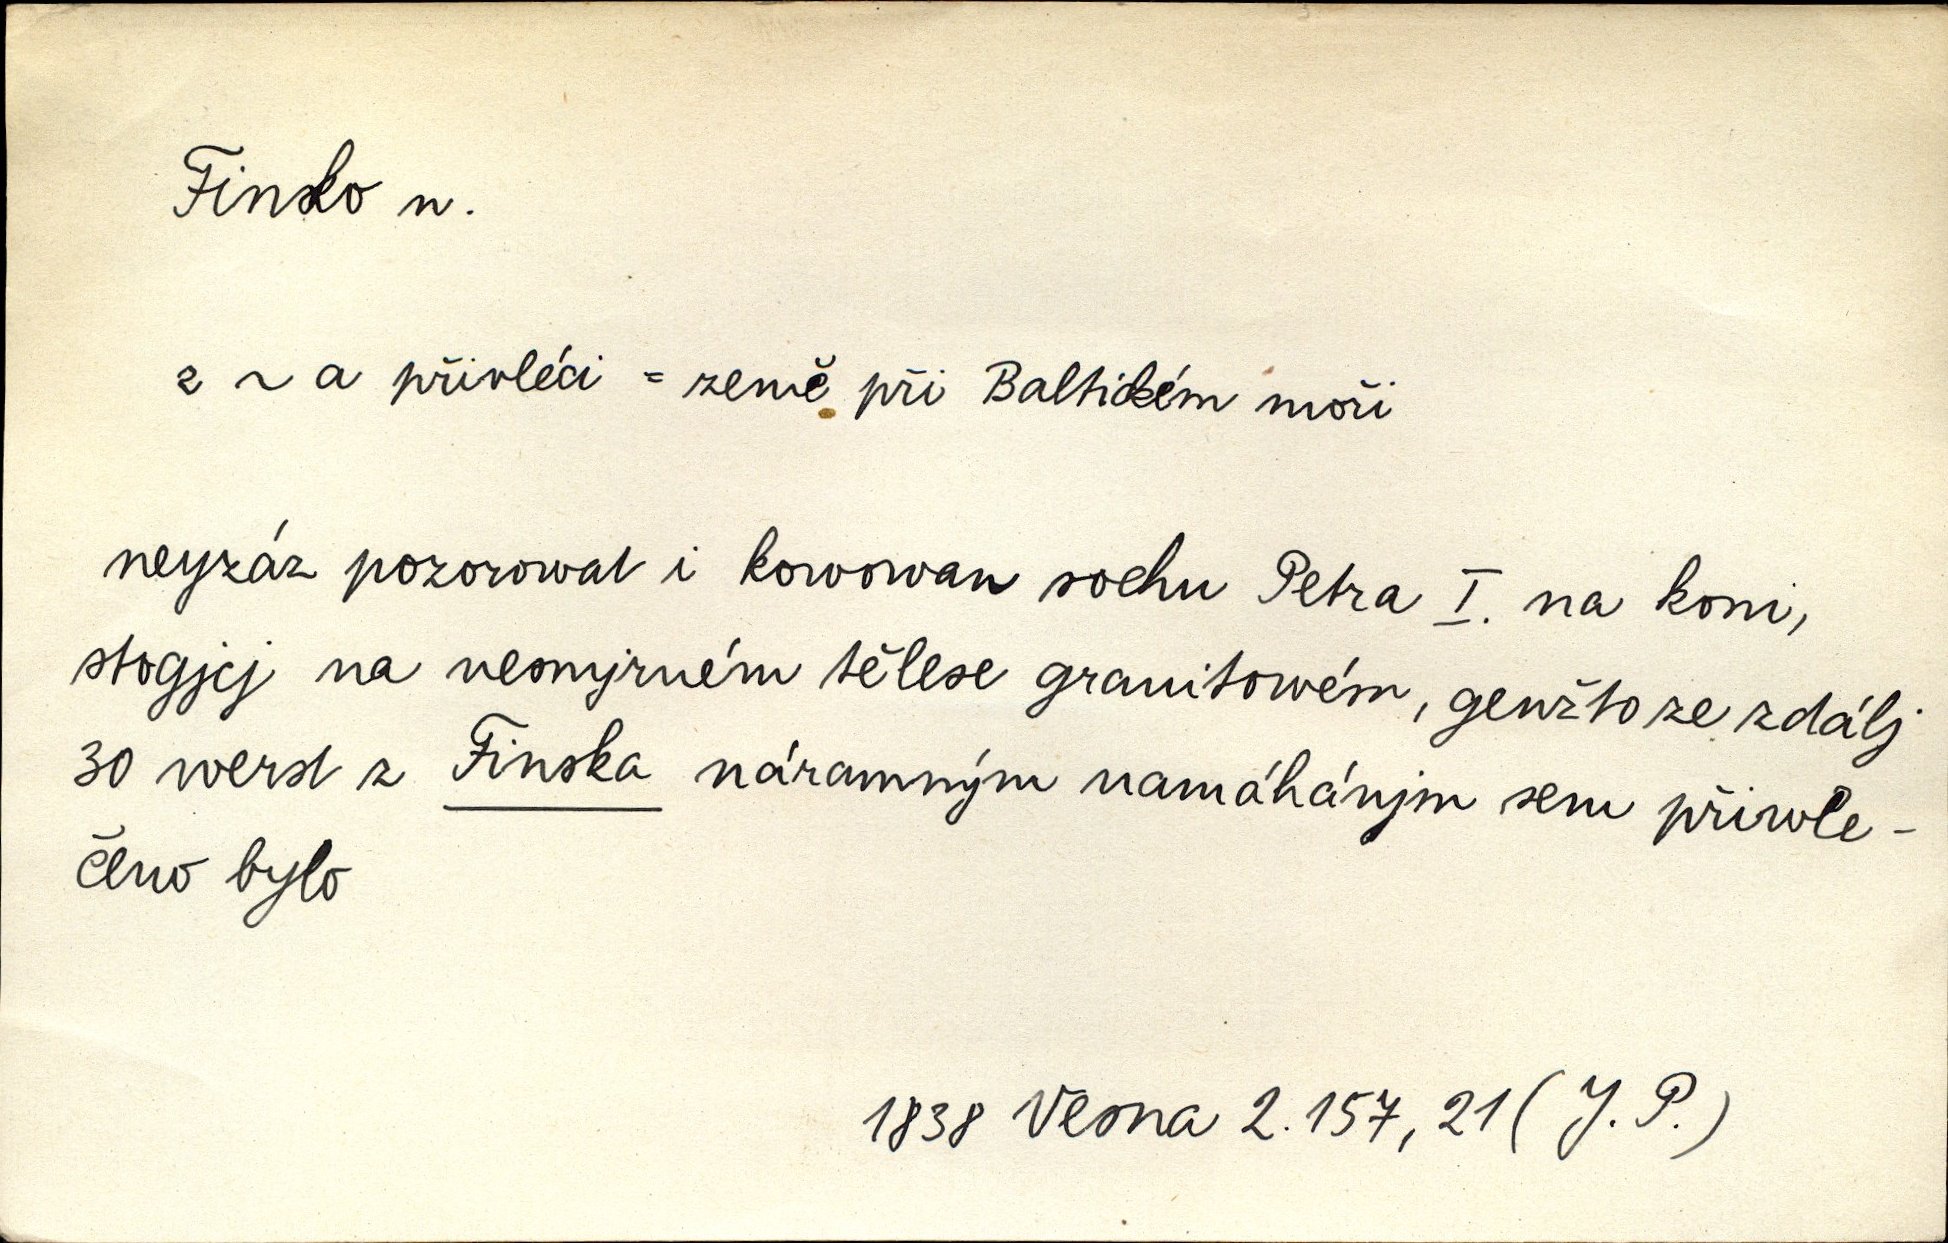 Finsko n.
z ~ a přivléci = země při Baltickém moři
neyzáz pozorowal i kowowau sochu Petra I. na koni,
stogjcj na nesmjrném tělese granitowém, genžto ze zdálj
30 werst z Finska náramným namáhánjm sem přiwle-
čeno bylo
1838 Vesna 2. 157, 21 (J. P.)